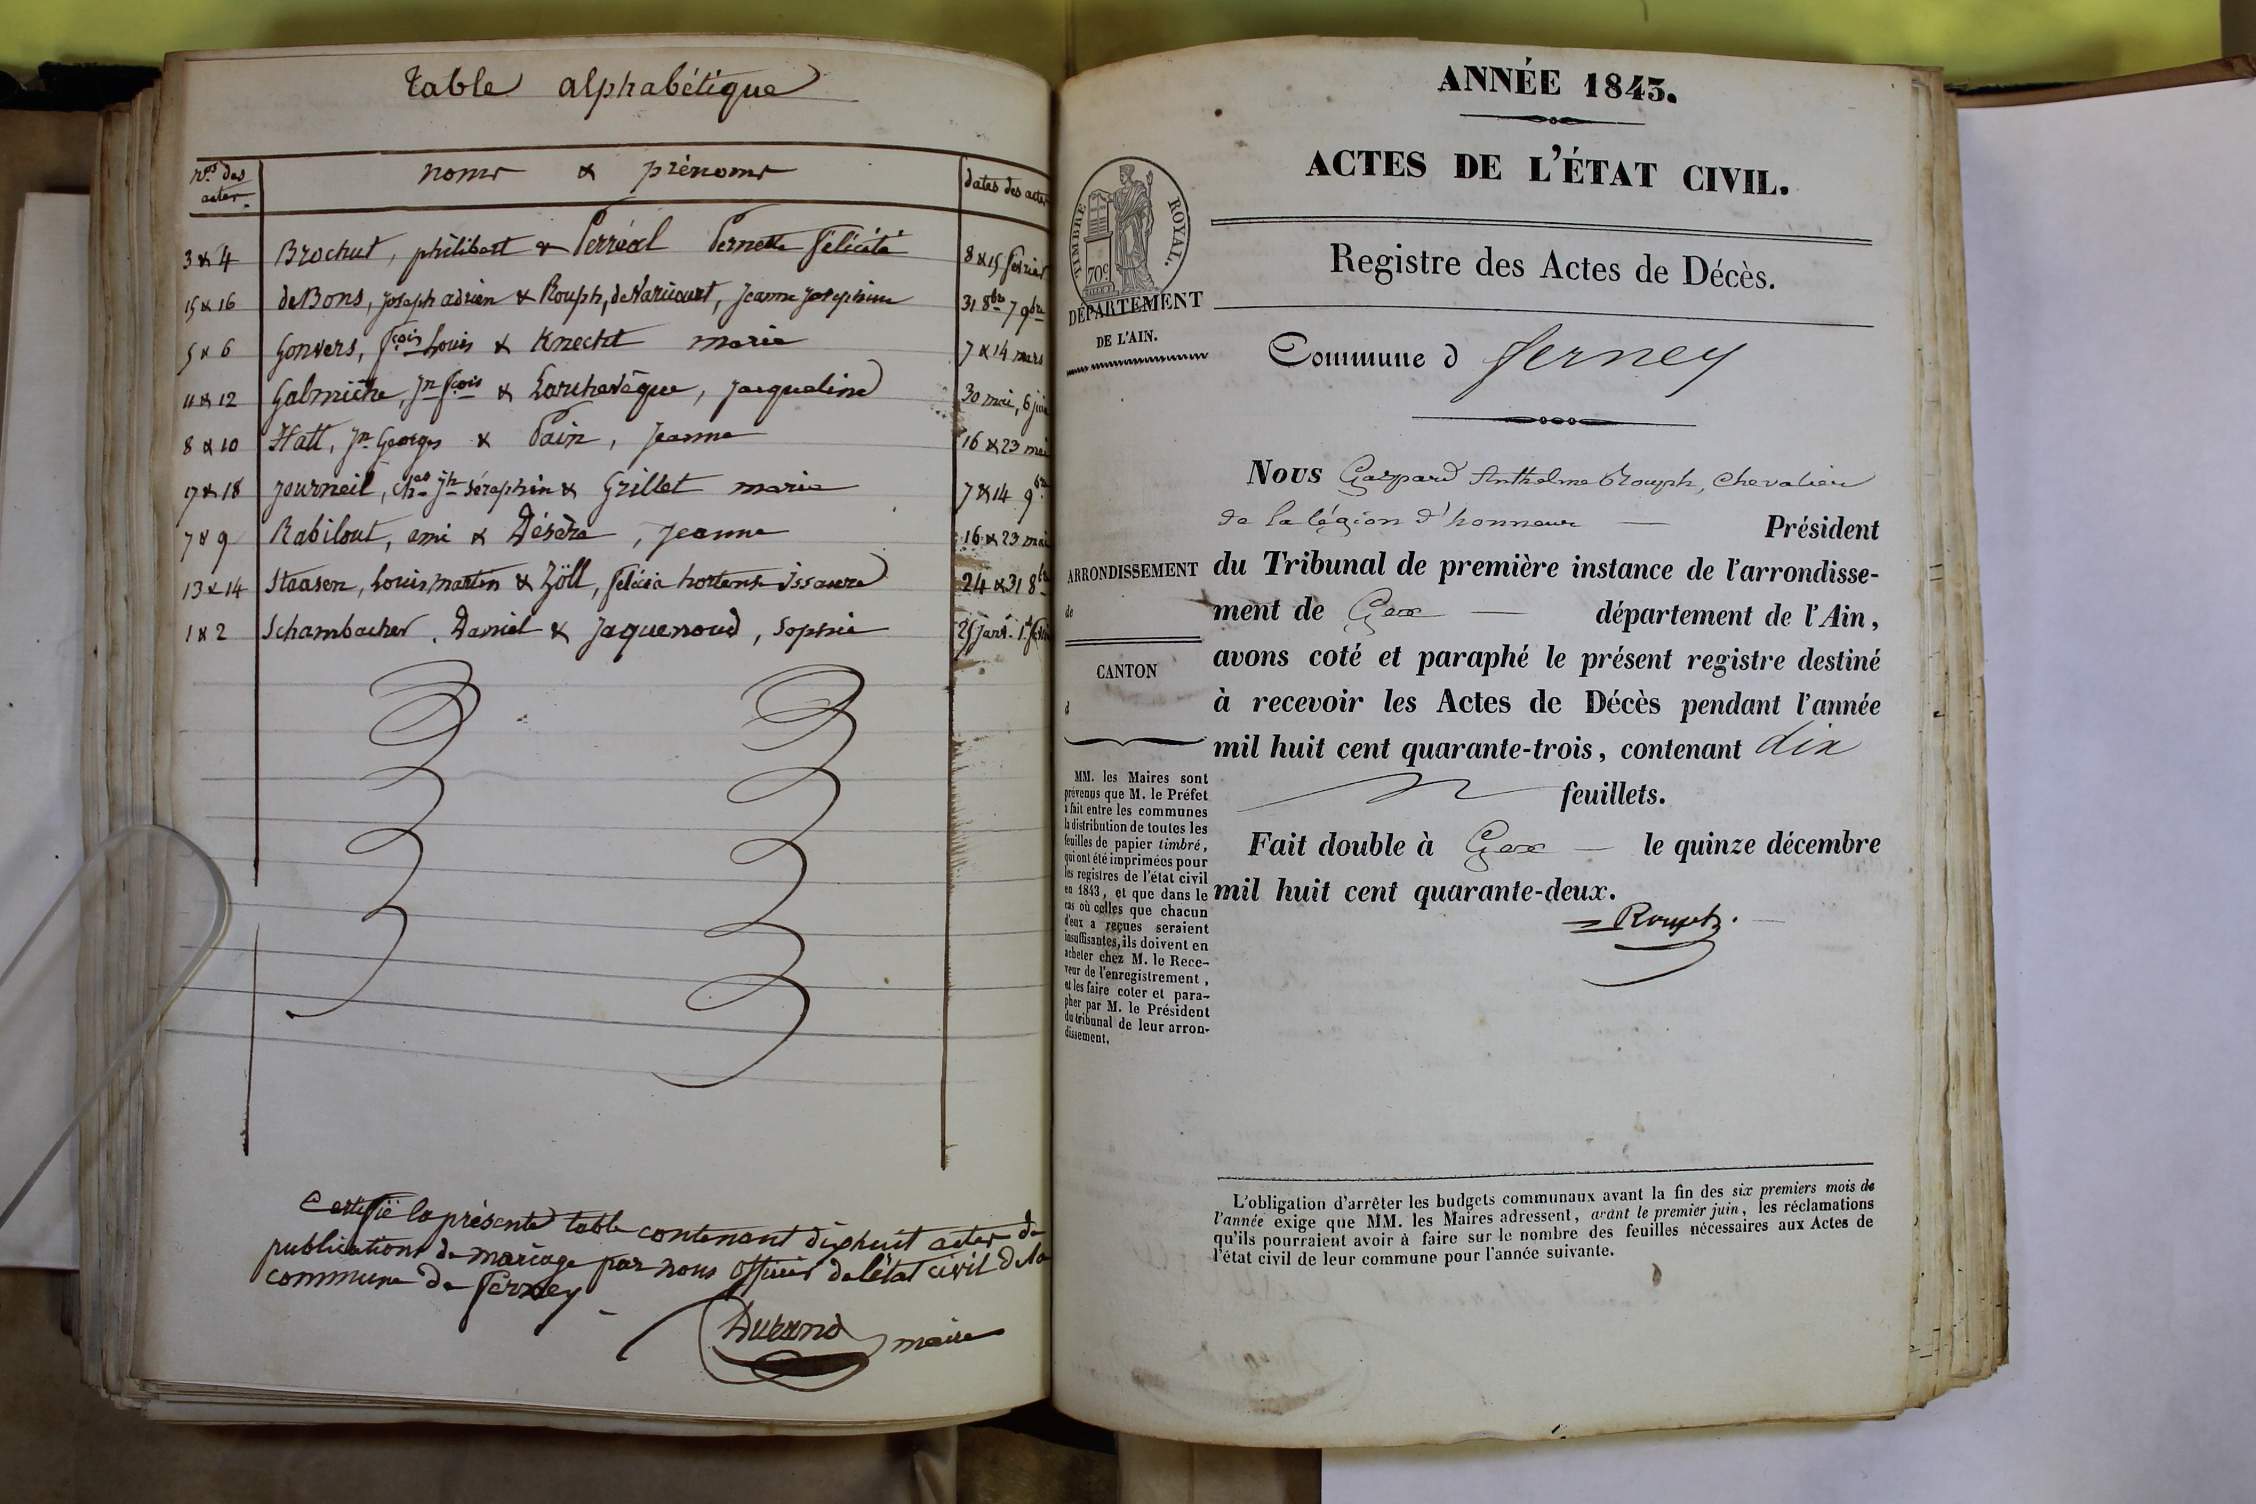 table alphabétique
nos des actes. noms & prénoms dates des actes
3 & 4 Brochut, philibert & Perréal Pernette félicité 8 & 15 février
15 & 16 de Bons, joseph adrien & Rouph, de Varicourt, jeanne josephine 31 8bre 7 9bre
5 & 6 Gonvers, fçois Louis & Knecht marie 7 & 14 mars
11 & 12 Galmiche, jn fçois & Larchevêque, jacqueline 30 mai, 6 juin
8 & 10 Hatt, jn Georges & Pain, jeanne 16 & 23 mai
17 & 18 journeil, chas jh séraphin & Grillet marie 7 & 14 9bre
7 & 9 Rabilout, ami & Désère, jeanne 16 & 23 mai
13 & 14 Staasen, Louis martin & Zöll, félicia hortense issaure 24 & 31 8bre
1 & 2 Schambacher, Daniel & jaquenoud, Sophie 25 janv. 1er février
Certifié la présente table contenant dixhuit actes de
publications de mariage par nous officier de l'état civil de la
commune de ferney
Durand maire
ANNÉE 1843.
ACTES DE L'ÉTAT CIVIL.
TIMBRE ROYAL.
70c
DÉPARTEMENT
DE L'AIN.
Registre des Actes de Décès.
Commune d ferney
Nous Gaspard Anthelme Rouph, chevalier
de la légion d'honneur — Président
du Tribunal de première instance de l'arrondisse-
ment de Gex — département de l'Ain,
avons coté et paraphé le présent registre destiné
à recevoir les Actes de Décès pendant l'année
mil huit cent quarante-trois, contenant dix
feuillets.
Fait double à Gex — le quinze décembre
mil huit cent quarante-deux.
Rouph.
ARRONDISSEMENT
de
CANTON
d
MM. les Maires sont
prévenus que M. le Préfet
a fait entre les communes
la distribution de toutes les
feuilles de papier timbré,
qui ont été imprimées pour
les registres de l'état civil
en 1843, et que dans le
cas où celles que chacun
d'eux a reçues seraient
insuffisantes, ils doivent en
acheter chez M. le Rece-
veur de l'enregistrement,
et les faire coter et para-
pher par M. le Président
du tribunal de leur arron-
dissement.
L'obligation d'arrêter les budgets communaux avant la fin des six premiers mois de
l'année exige que MM. les Maires adressent, avant le premier juin, les réclamations
qu'ils pourraient avoir à faire sur le nombre des feuilles nécessaires aux Actes de
l'état civil de leur commune pour l'année suivante.